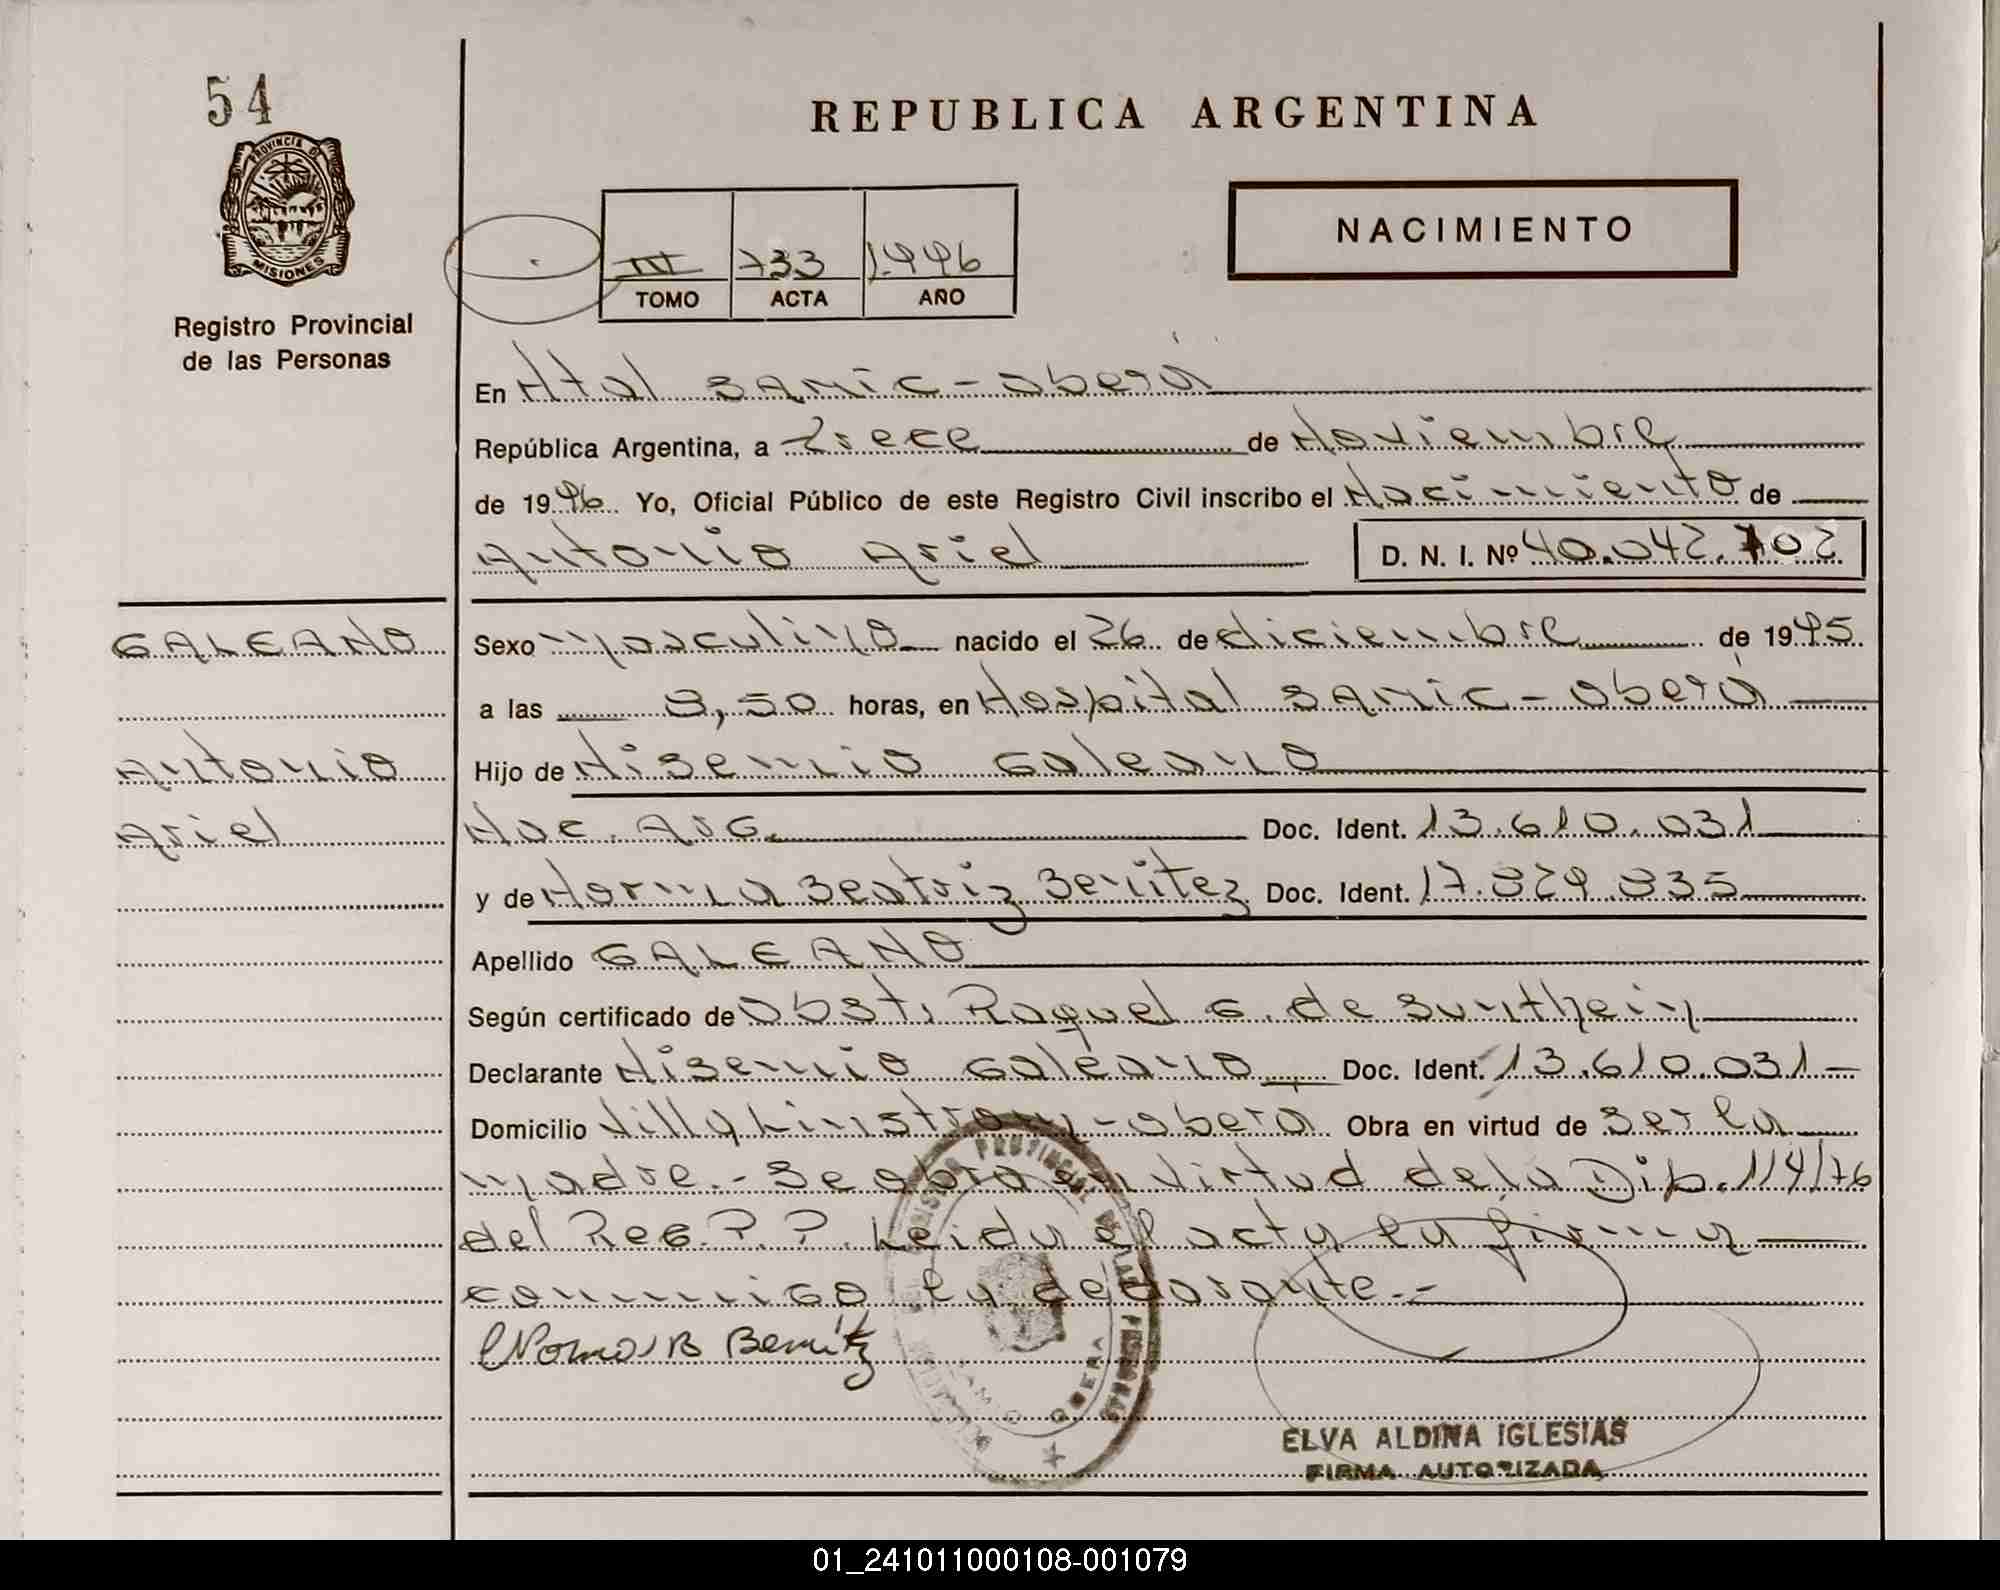 54
REPUBLICA ARGENTINA
PROVINCIA DE
MISIONES
Registro Provincial
de las Personas
NACIMIENTO
III 733 1.996
TOMO ACTA AÑO
En Htal SAMIC - Oberá
República Argentina, a Trece de Noviembre
de 1996 Yo, Oficial Público de este Registro Civil inscribo el Nacimiento de
Antonio Ariel D. N. I. Nº 40.042.702
GALEANO
Antonio
Ariel
Sexo masculino nacido el 26 de diciembre de 1995
a las 8,50 horas, en Hospital SAMIC - Oberá
Hijo de Nisemio Galeano
Nac. Arg. Doc. Ident. 13.610.031
y de Norma Beatriz Benitez Doc. Ident. 17.829.835
Apellido GALEANO
Según certificado de Obst. Raquel G. de Sunthein
Declarante Nisemio Galeano Doc. Ident. 13.610.031-
Domicilio Villa Linstrom - Oberá Obra en virtud de ser la
madre.- Se obra en virtud de la Dip. 114/76
del Reg. P. P. Leida el acta la firma
conmigo la declarante.-
Norma B Benitez
OBERA
ELVA ALDINA IGLESIAS
FIRMA AUTORIZADA
01_241011000108-001079